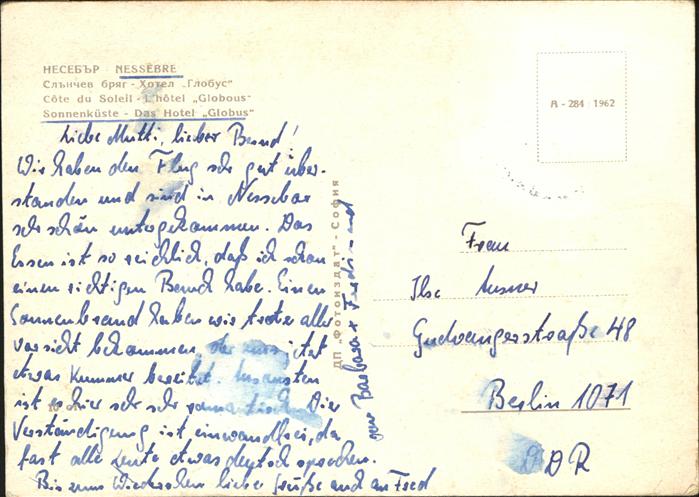 НЕСЕБЪР NESSEBRE
Слънчев бряг - Хотел „Глобус“
Côte du Soleil - L'hôtel „Globous“
Sonnenküste - Das Hotel „Globus“
Liebe Mutti, lieber Bernd!
Wir haben den Flug sehr gut über-
standen und sind in Nessebar
sehr schön untergekommen. Das
Essen ist so reichlich, daß ich schon
einen richtigen Bauch habe. Einen
Sonnenbrand haben wir trotz aller
Vorsicht bekommen, der uns jetzt
etwas Kummer bereitet. Ansonsten
ist es hier sehr sehr romantisch. Die
Verständigung ist einwandfrei, da
fast alle Leute etwas deutsch sprechen.
Bis zum Wiedersehen liebe Grüße auch an Fred
von Barbara + Ferdinand
ДП „Фотоиздат“ - София
А - 284 1962
Frau
Ilse
Gudvangerstraße 48
Berlin 1071
DDR